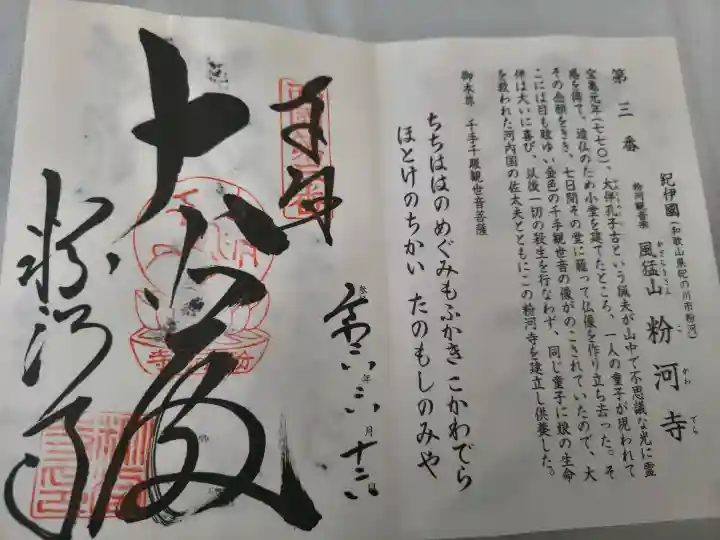 第三番
紀伊國(和歌山県紀の川市粉河)
粉河観音宗
風猛山 粉河寺
かざらぎさん こ かわ でら
宝亀元年(七七〇)、大伴孔子古という猟夫が山中で不思議な光に霊
感を得て、造仏のため小堂を建てたところ、一人の童子が現われて
その念願をきき、七日間その堂に籠って仏像を作り立ち去った。そ
こには目も眩ゆい金色の千手観世音の像がのこされていたので、大
伴は大いに喜び、以後一切の殺生を行なわず、同じ童子に娘の生命
を救われた河内国の佐太夫とともにこの粉河寺を建立し供養した。
御本尊 千手千眼観世音菩薩
ちちははの めぐみもふかき こかわでら
ほとけのちかい たのもしのみや
奉拝
令六年三月十六日
大悲殿
粉河寺